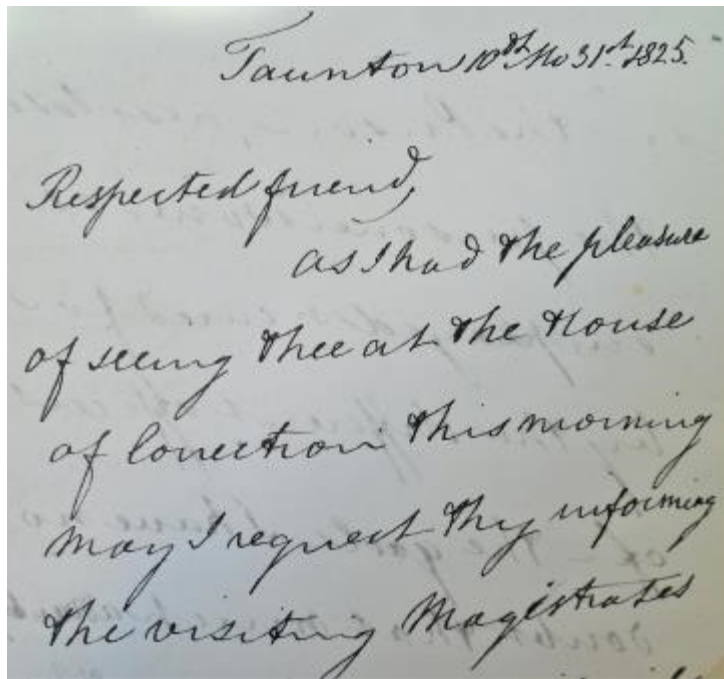 Taunton 10th Mo 31st 1825.
Respected friend,
as I had the pleasure
of seeing thee at the House
of Correction this morning
may I request thy informing
the visiting Magistrates